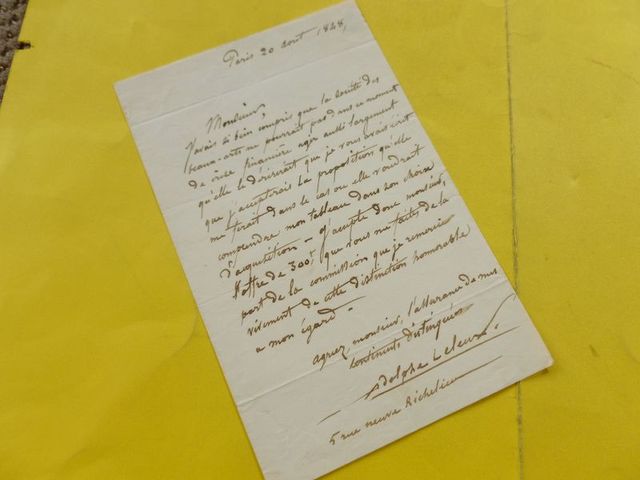 Paris 20 aout 1848,
Monsieur
J'avais si bien compris que la société des
beaux-arts ne pourrait pas dans ce moment
de crise financière agir aussi largement
qu'elle le désirerait que je vous avais écrit
que j'accepterais la proposition qu'elle
me ferait dans le cas ou elle voudrait
comprendre mon tableau dans son choix
d'acquisition - J'accepte donc monsieur,
l'offre de 300f que vous me faites de la
part de la commission que je remercie
vivement de cette distinction honorable
a mon égard -
agréez monsieur, l'assurance de mes
sentiments distingués
Adolphe Leleux.
5 rue neuve Richelieu